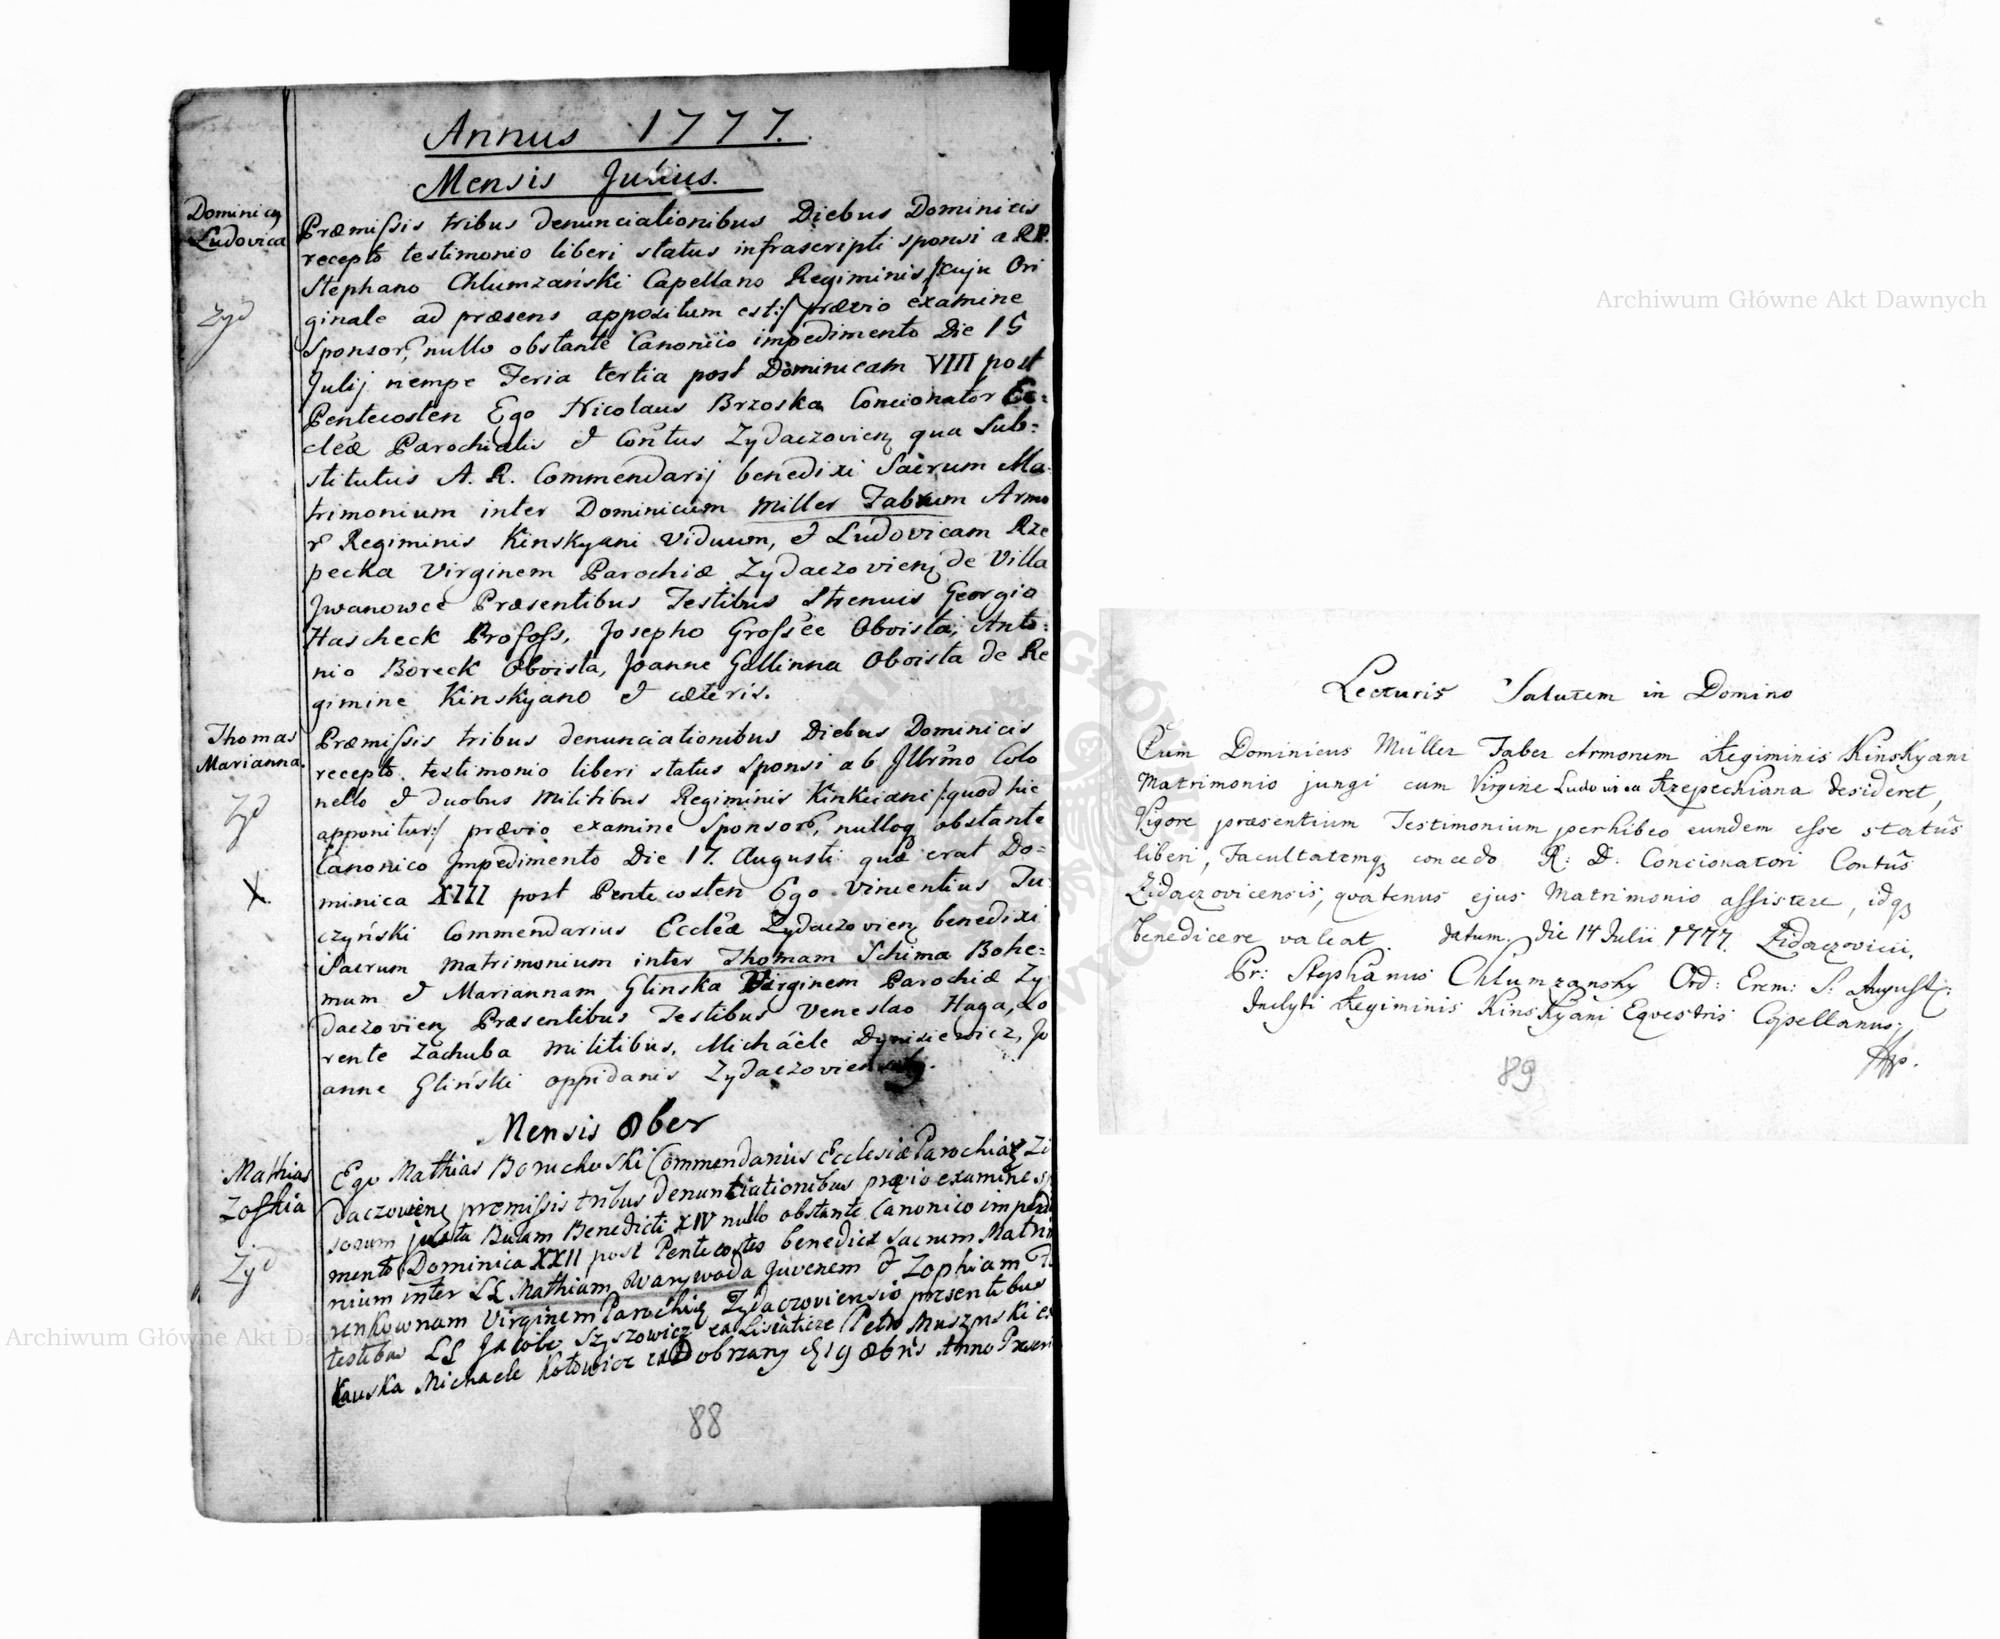 Annus 1777.
Mensis Julius.
Dominicq
Ludovica
Zyd
Præmissis tribus denunciationibus Diebus Dominicis
recepto testimonio liberi status infrascripti sponsi a RP.
Stephano Chlumzański Capellano Regiminis /:cuju Ori
ginale ad præsens appositum est:/ prævio examine
Sponsor, nullo obstante Canonico impedimento Die 15
Julij nempe Feria tertia post Dominicam VIII post
Pentecosten Ego Nicolaus Brzoska Concionator Ec=
cleæ Parochialis et Contus Zydaczovienq qua Sub=
stitutus A. R. Commendarij benedixi Sacrum Ma
trimonium inter Dominicum Miller Fabrum Armo
r Regiminis Kinskyani Viduum, et Ludovicam Rze
pecka Virginem Parochiæ Zydaczovienq de Villa
Jwanowce Præsentibus Testibus Strenuis Georgio
Hascheck Profoss, Josepho Grossee Oboista, Anto=
nio Boreck Oboista, Joanne Gallinna Oboista de Re
gimine Kinskyano et cæteris.
Thomas
Marianna.
Zyd
X
Præmissis tribus denunciationibus Diebus Dominicis
recepto testimonio liberi status Sponsi ab Jllrmo Colo
nello et duobus Militibus Regiminis Kinkiiani /:quod hic
apponitur:/ prævio examine Sponsor, nulloq obstante
Canonico Jmpedimento Die 17. Augusti quæ erat Do=
minica XIII post Pentecosten Ego Vincentius Tu
czyński Commendarius Eccleæ Zydaczovienq benedixi
Sacrum Matrimonium inter Thomam Schima Bohe=
mum et Mariannam Glinska Virginem Parochiæ Zy
daczovienq Præsentibus Testibus Veneslao Haga, Lo
rente Zachuba Militibus, Micháele Dynisiewicz, Jo
anne Gliński oppidanis Zydaczovien
Mensis 8ber
Mathias
Zofhia
Zyd
Ego Mathias Boruchoski Commendarius Ecclesiæ Parochiaq Zi
daczovienq premissis tribus denuntiationibus prævio examine
sorum juxta Bulam Benedicti XIV nullo obstante Canonico impedi
mento Dominica XXII post Pentecostes benedixi Sacrum Matri
nium inter LL Mathiam Warywoda Juvenem et Zophiam
renkownam Virginem Parochiq Zydaczoviensis præsentibus
testibus LL Jacobo Szyszowicz ex Lisiaticze Petro Muszynski
Kauska Michaele Kotowicz ex Dobrzany 19 8bris Anno Præsen
88
Lecturis Salutem in Domino
Cum Dominicus Müller Faber Armorum Regiminis Kinskyani
Matrimonio jungi cum Virgine Ludovica Rzepechiana desideret,
Vigore præsentium Testimonium perhibeo eundem esse statûs
liberi, Facultatemq concedo R: D: Concionatori Contûs
Zidaczovicensis, qvatenus ejus Matrimonio assistere, idq
benedicere valeat. datum. die 14 Julii 1777. Zidaczovici.
Pr: Stephanus Chlumzansky Ord: Erem: S: August:
Jnclyti Regiminis Kinskyani Eqvestris Capellanus;
89
Archiwum Główne Akt Dawnych
Archiwum Główne Akt Dawnych